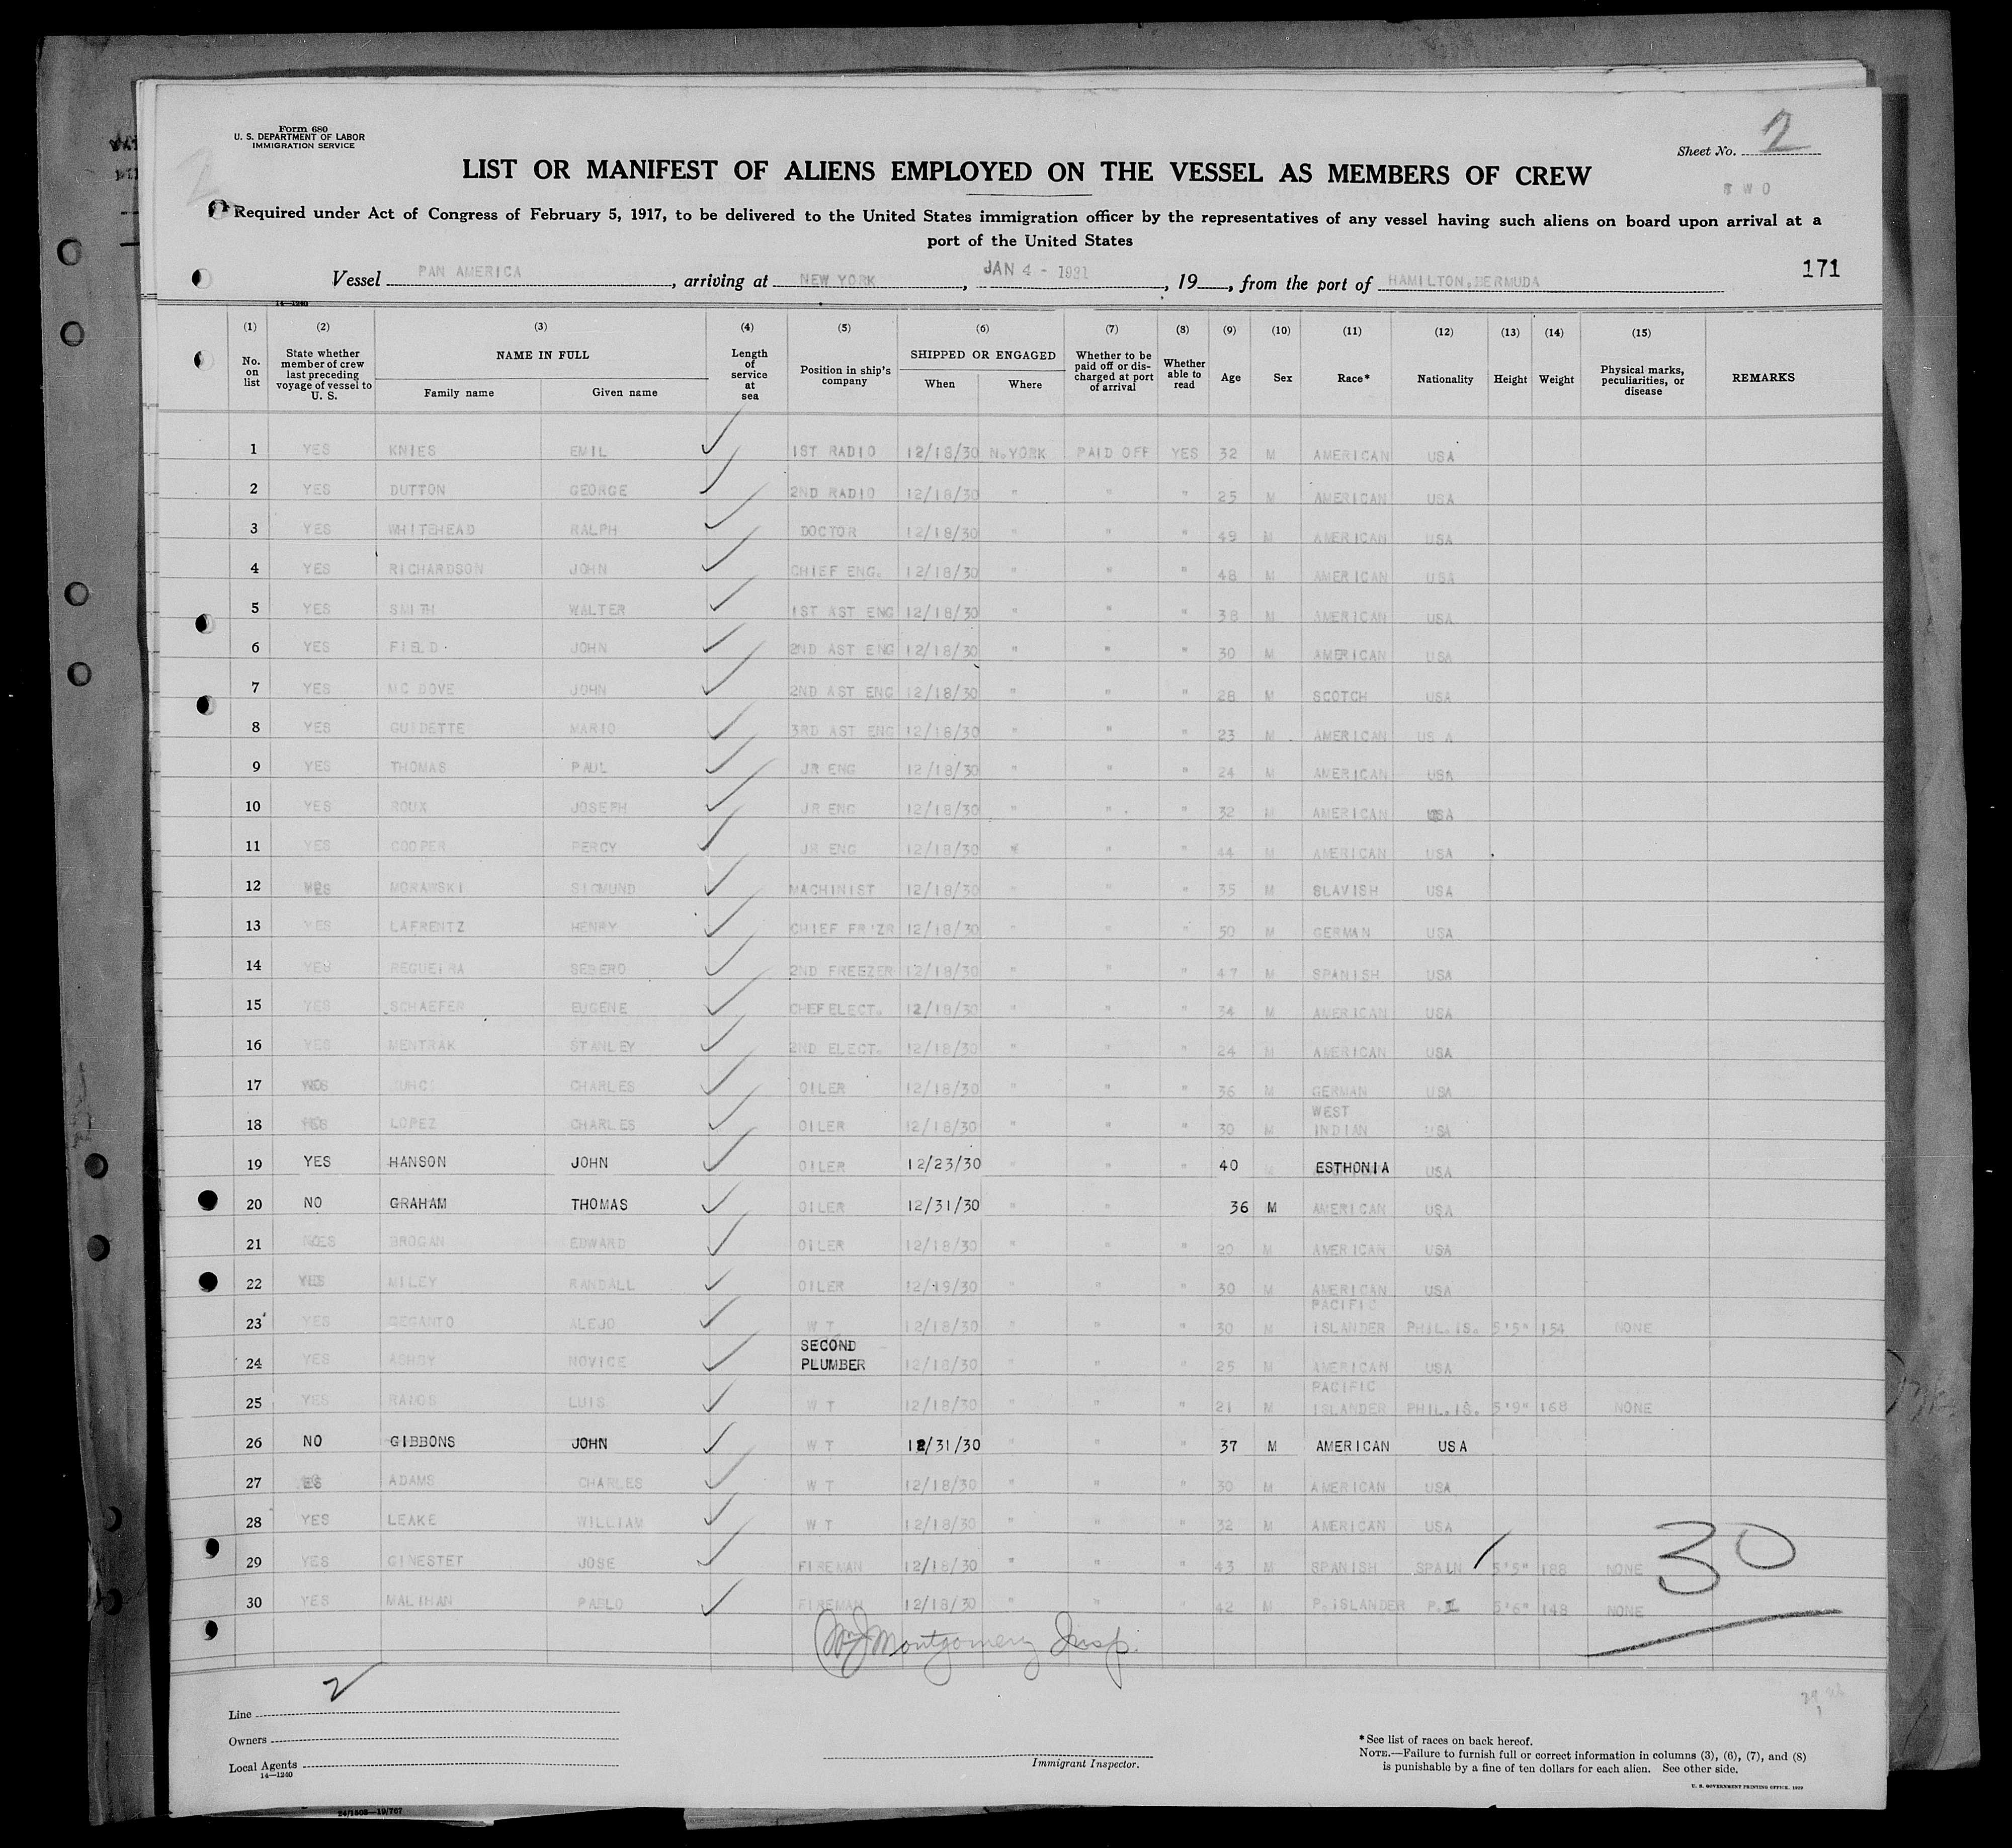 Form 680
U. S. DEPARTMENT OF LABOR
IMMIGRATION SERVICE
Sheet No. 2
TWO
LIST OR MANIFEST OF ALIENS EMPLOYED ON THE VESSEL AS MEMBERS OF CREW
Required under Act of Congress of February 5, 1917, to be delivered to the United States immigration officer by the representatives of any vessel having such aliens on board upon arrival at a
port of the United States
171
Vessel PAN AMERICA, arriving at NEW YORK, JAN 4 - 1931, 19__, from the port of HAMILTON, BERMUDA
14—1240
(1) (2) (3) (4) (5) (6) (7) (8) (9) (10) (11) (12) (13) (14) (15)
No. on list | State whether member of crew last preceding voyage of vessel to U. S. | NAME IN FULL Family name Given name | Length of service at sea | Position in ship's company | SHIPPED OR ENGAGED When Where | Whether to be paid off or discharged at port of arrival | Whether able to read | Age | Sex | Race* | Nationality | Height | Weight | Physical marks, peculiarities, or disease | REMARKS
1 YES KNIES EMIL ✓ 1ST RADIO 12/18/30 N.YORK PAID OFF YES 32 M AMERICAN USA
2 YES DUTTON GEORGE ✓ 2ND RADIO 12/18/30 " " " 25 M AMERICAN USA
3 YES WHITEHEAD RALPH ✓ DOCTOR 12/18/30 " " " 49 M AMERICAN USA
4 YES RICHARDSON JOHN ✓ CHIEF ENG. 12/18/30 " " " 48 M AMERICAN USA
5 YES SMITH WALTER ✓ 1ST AST ENG 12/18/30 " " " 38 M AMERICAN USA
6 YES FIELD JOHN ✓ 2ND AST ENG 12/18/30 " " " 30 M AMERICAN USA
7 YES MC DOVE JOHN ✓ 2ND AST ENG 12/18/30 " " " 28 M SCOTCH USA
8 YES GUIDETTE MARIO ✓ 3RD AST ENG 12/18/30 " " " 23 M AMERICAN US A
9 YES THOMAS PAUL ✓ JR ENG 12/18/30 " " " 24 M AMERICAN USA
10 YES ROUX JOSEPH ✓ JR ENG 12/18/30 " " " 32 M AMERICAN USA
11 YES COOPER PERCY ✓ JR ENG 12/18/30 " " " 44 M AMERICAN USA
12 YES MORAWSKI SIGMUND ✓ MACHINIST 12/18/30 " " " 35 M SLAVISH USA
13 YES LAFRENTZ HENRY ✓ CHIEF FR'ZR 12/18/30 " " " 50 M GERMAN USA
14 YES REGUEIRA SEBERO ✓ 2ND FREEZER 12/18/30 " " " 47 M SPANISH USA
15 YES SCHAEFER EUGENE ✓ CHEF ELECT. 12/18/30 " " " 34 M AMERICAN USA
16 YES MENTRAK STANLEY ✓ 2ND ELECT. 12/18/30 " " " 24 M AMERICAN USA
17 CHARLES ✓ OILER 12/18/30 " " " 36 M GERMAN USA
18 LOPEZ CHARLES ✓ OILER 12/18/30 " " " 30 M WEST INDIAN USA
19 YES HANSON JOHN ✓ OILER 12/23/30 " " " 40 ESTHONIA USA
20 NO GRAHAM THOMAS ✓ OILER 12/31/30 " " 36 M AMERICAN USA
21 BROGAN EDWARD ✓ OILER 12/18/30 " " " 20 M AMERICAN USA
22 YES MILEY RANDALL ✓ OILER 12/19/30 " " " 30 M AMERICAN USA
23 YES DEGANTO ALEJO ✓ W T 12/18/30 " " " 30 M PACIFIC ISLANDER PHIL.IS. 5'5" 154 NONE
24 YES ASHBY NOVICE ✓ SECOND PLUMBER 12/18/30 " " " 25 M AMERICAN USA
25 YES RAMOS LUIS ✓ W T 12/18/30 " " " 21 M PACIFIC ISLANDER PHIL.IS. 5'9" 168 NONE
26 NO GIBBONS JOHN ✓ W T 12/31/30 " " " 37 M AMERICAN USA
27 ADAMS CHARLES ✓ W T 12/18/30 " " " 30 M AMERICAN USA
28 YES LEAKE WILLIAM ✓ W T 12/18/30 " " " 32 M AMERICAN USA
29 YES GINESTET JOSE ✓ FIREMAN 12/18/30 " " " 43 M SPANISH SPAIN 5'5" 188 NONE
30 YES MALIHAN PABLO ✓ FIREMAN 12/18/30 " " " 42 M P.ISLANDER P.I 5'6" 148 NONE
30
Wm J Montgomery Insp.
2
Line
Owners
Local Agents
14—1240
Immigrant Inspector.
*See list of races on back hereof.
NOTE.—Failure to furnish full or correct information in columns (3), (6), (7), and (8)
is punishable by a fine of ten dollars for each alien. See other side.
U. S. GOVERNMENT PRINTING OFFICE. 1929